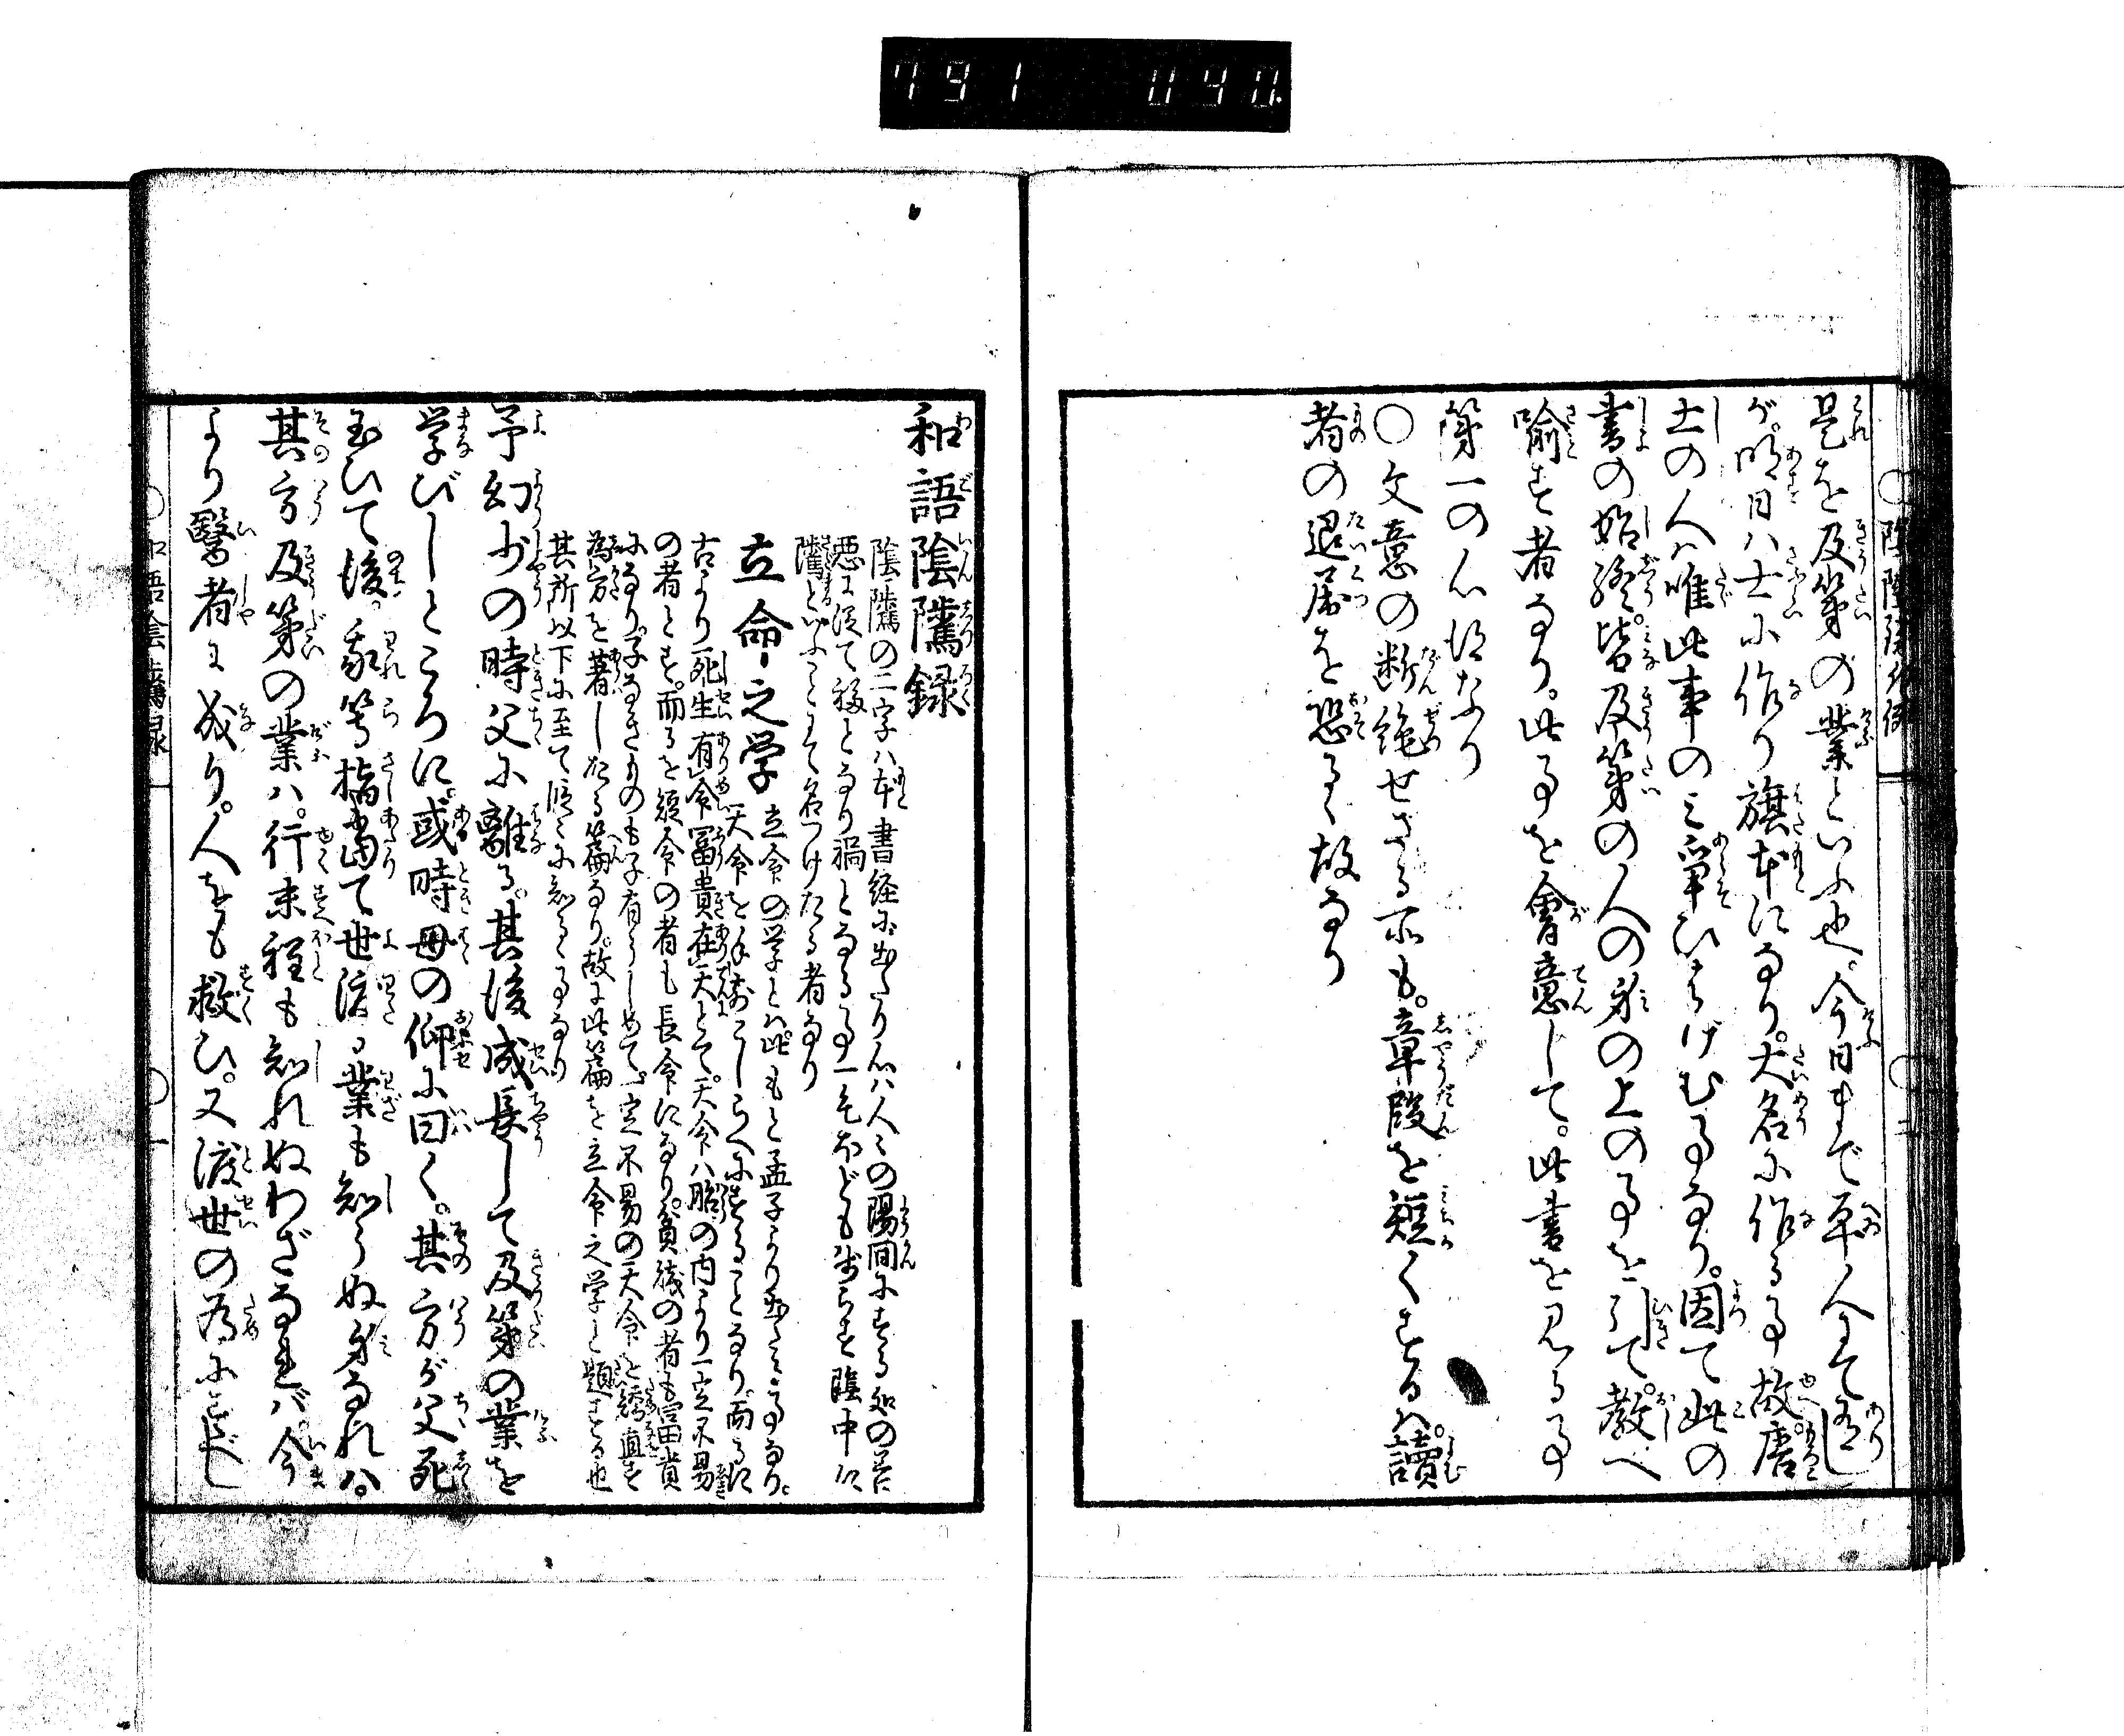 791 040
是を及第の業といふ也。今日まで平人にて有し
が。明日ハ士に作り旗本になり。大名に作る事故。唐
士の人ハ唯此事のミ争ひはげむ事なり。因て此の
書の始終。皆及第の人の身の上の事を引て。教へ
喩す者なり。此事を會意して。此書を見る事
第一の心得なり
〇文意の断絶せざる所も。章段を短くするハ。讀
者の退屈を恐るゝ故なり
和語陰隲録
陰隲の二字ハ本書経に出たり心ハ人々の陽間にする処の善
悪に従て福となり禍となる事一毛ほども違はず陰中に
隲といふことにて名つけたる者なり
立命之学
立命の学とハ此もと孟子より出たる事なり。
天命を手前こしらへにすることなり。而るに
古より死生有命冨貴在天とて。天命ハ胎の内より一定不易
の者とす。而るを短命の者も長命になり。貧賤の者も冨貴
になり。子なきものも子有らしめて。一定不易の天命を矯直す
為方を著したる篇なり。故に此篇を立命之学と題する也
其所以下に至て次々に知るゝ事なり
予幼少の時父に離る。其後成長して及第の業を
学びしところに。或時母の仰に曰く。其方が父死
玉ひて後。我等指當て世渡る業も知らぬ身なれハ。
其方及第の業ハ。行末程も知れぬわざなれバ。今
より醫者に成り。人をも救ひ。又渡世の為にすべし
和語陰隲録 〇 一